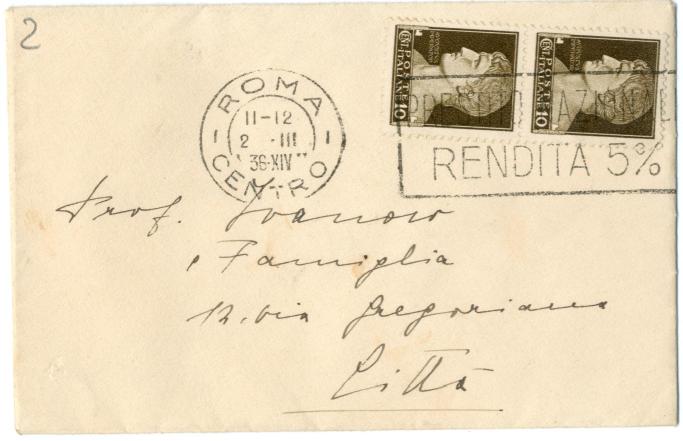 2
ROMA
11-12
2 III
36·XIV
CENTRO
POSTE
ITALIANE
CENT. 10
POSTE
ITALIANE
CENT. 10
RENDITA 5%
Prof. Ivanow
e Famiglia
12. via Gregoriana
Città